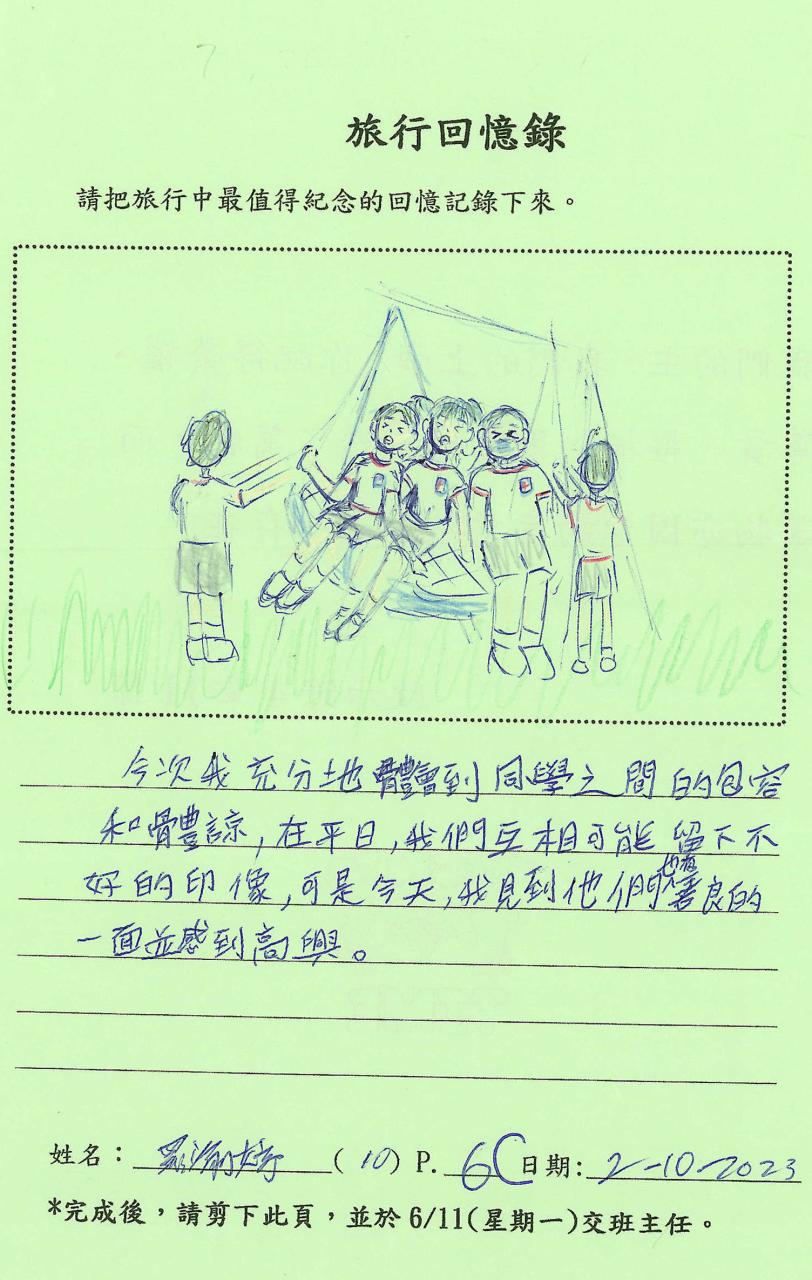 旅行回憶錄
請把旅行中最值得紀念的回憶記錄下來。
今次我充分地體會到同學之間的包容
和體諒,在平日,我們互相可能留下不
好的印像,可是今天,我見到他們也有善良的
一面並感到高興。
姓名: (10) P. 6C 日期: 2-10-2023
*完成後,請剪下此頁,並於6/11(星期一)交班主任。